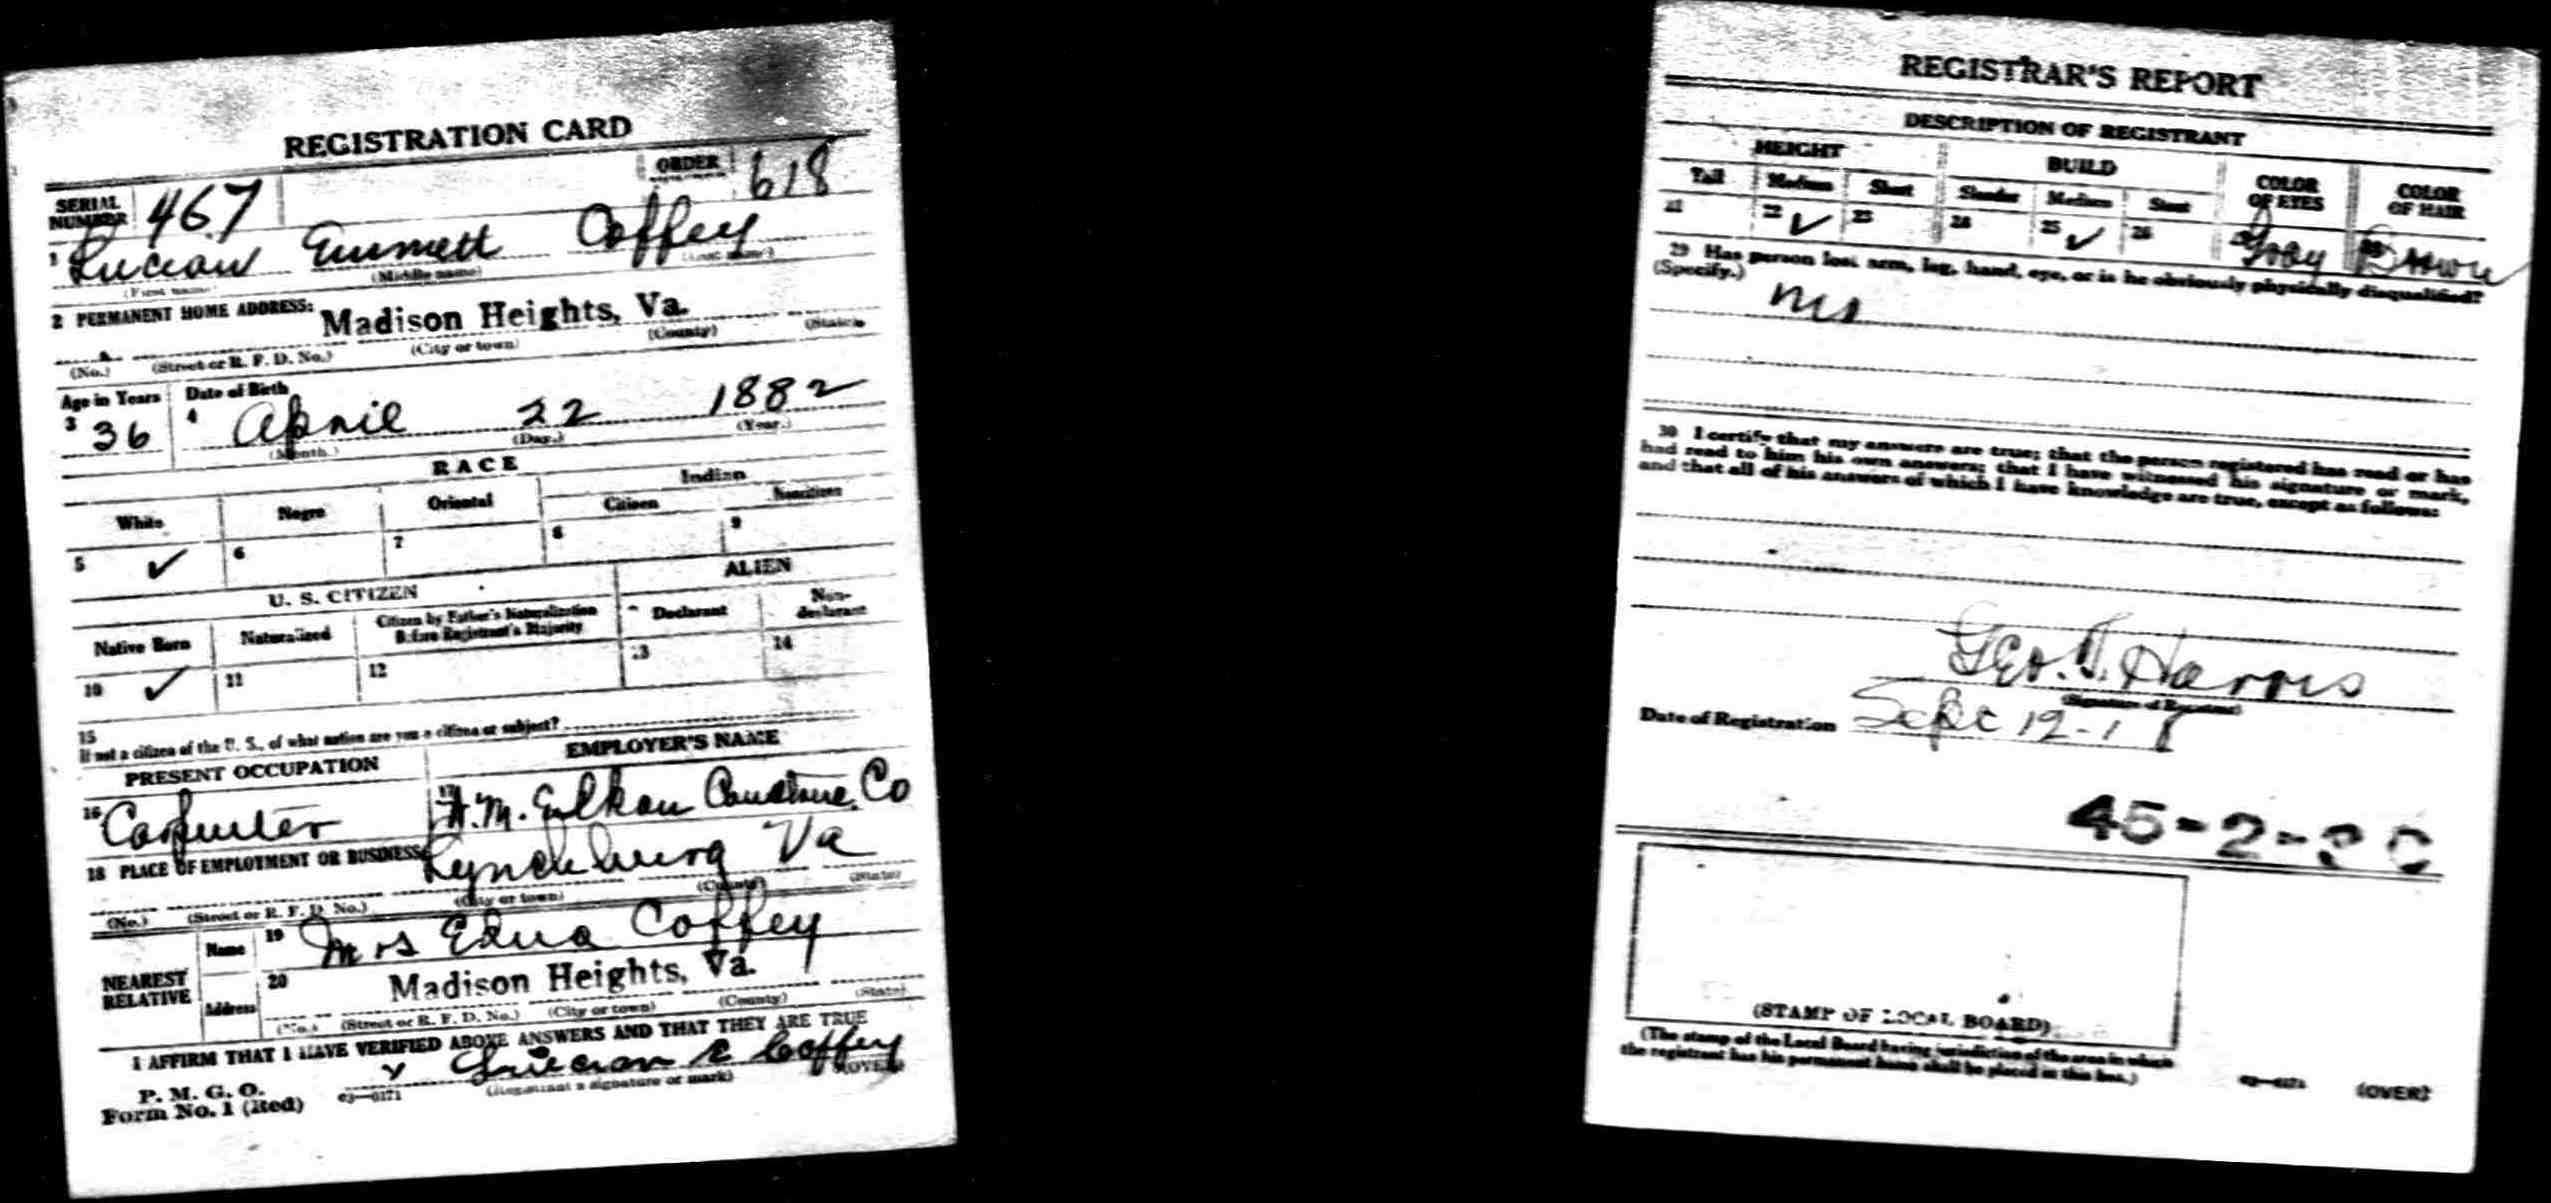 REGISTRATION CARD
SERIAL NUMBER 467 ORDER 618
1 Lucian Emmett Coffey
(First name) (Middle name) (Last name)
2 PERMANENT HOME ADDRESS:
Madison Heights, Va.
(No.) (Street or R. F. D. No.) (City or town) (County) (State)
Age in Years Date of Birth
3 36 4 April 22 1882
(Month.) (Day.) (Year.)
RACE
White Negro Oriental Indian
Citizen Noncitizen
5 ✓ 6 7 8 9
U. S. CITIZEN ALIEN
Native Born Naturalized Citizen by Father's Naturalization Before Registrant's Majority Declarant Non-declarant
10 ✓ 11 12 13 14
15
If not a citizen of the U. S., of what nation are you a citizen or subject?
PRESENT OCCUPATION EMPLOYER'S NAME
16 Carpenter 17 H.M. Co
18 PLACE OF EMPLOYMENT OR BUSINESS
Lynchburg Va
(No.) (Street or R. F. D. No.) (City or town) (County) (State)
NEAREST RELATIVE
Name 19 Mrs Edna Coffey
Address 20 Madison Heights, Va.
(No.) (Street or R. F. D. No.) (City or town) (County) (State)
I AFFIRM THAT I HAVE VERIFIED ABOVE ANSWERS AND THAT THEY ARE TRUE
P. M. G. O.
Form No. 1 (Red)
Luician E Coffey
(Registrant's signature or mark) (OVER)
REGISTRAR'S REPORT
DESCRIPTION OF REGISTRANT
HEIGHT BUILD COLOR OF EYES COLOR OF HAIR
Tall Medium Short Slender Medium Stout
21 22 ✓ 23 24 25 ✓ 26 27 Gray 28 Brown
29 Has person lost arm, leg, hand, eye, or is he obviously physically disqualified?
(Specify.) no
30 I certify that my answers are true; that the person registered has read or has
had read to him his own answers; that I have witnessed his signature or mark,
and that all of his answers of which I have knowledge are true, except as follows:
Geo. Harris
(Signature of Registrar)
Date of Registration Sept 12-18
45-2-
(STAMP OF LOCAL BOARD)
(The stamp of the Local Board having jurisdiction of the area in which
the registrant has his permanent home shall be placed in this box.)
(OVER)